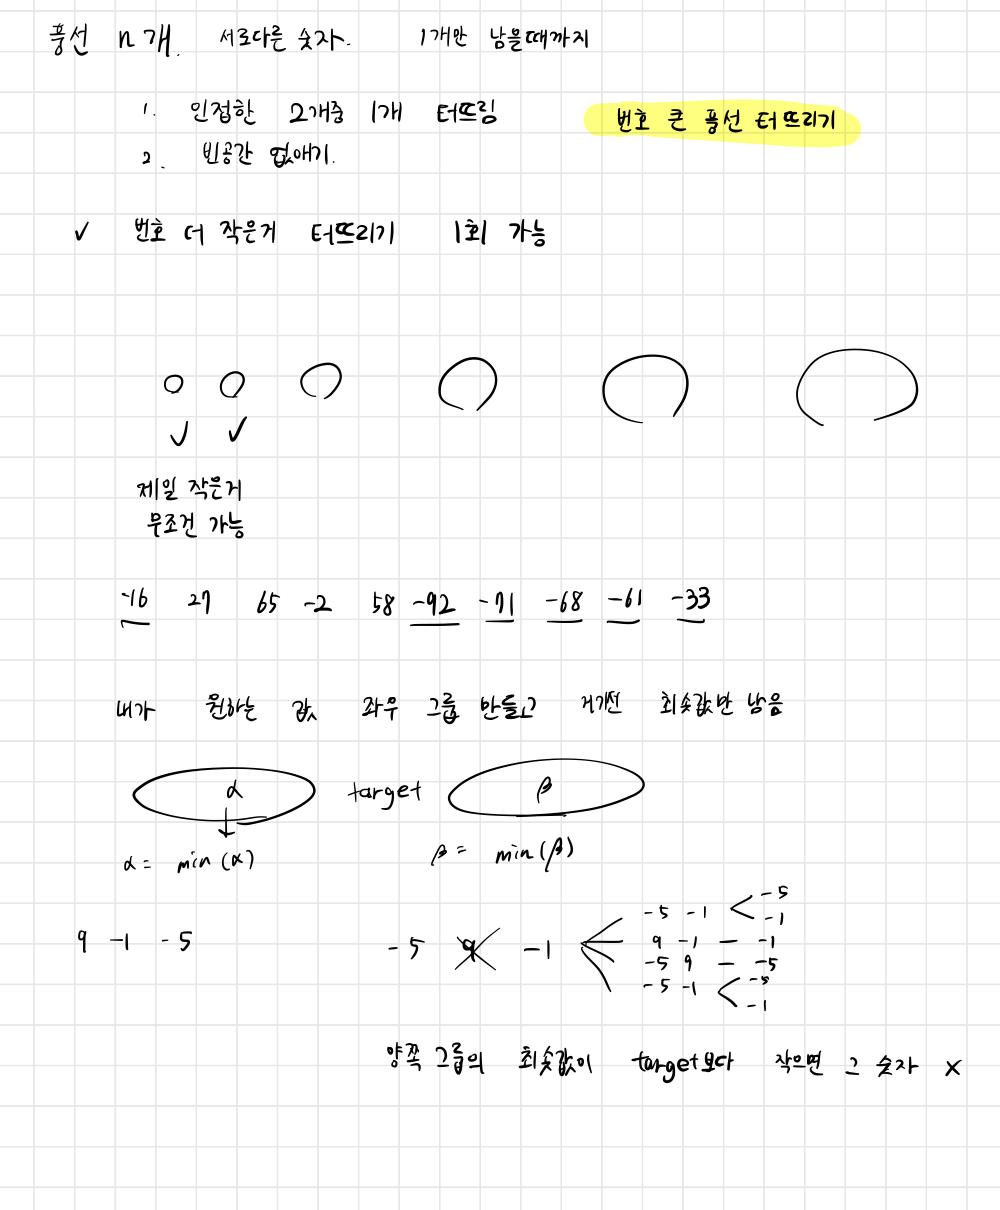 풍선 n개. 서로다른 숫자. 1개만 남을때까지
1. 인접한 2개중 1개 터뜨림
번호 큰 풍선 터뜨리기
2. 빈공간 없애기.
✓ 번호 더 작은거 터뜨리기 1회 가능
제일 작은거
무조건 가능
-16 27 65 -2 58 -92 -71 -68 -61 -33
내가 원하는 값 좌우 그룹 만들고 거기선 최솟값만 남음
α target β
α = min (α) β = min (β)
-5 -1 < -5
-1
9 -1 -5
-5 9 -1
9 -1 — -1
-5 9 — -5
-5 -1 < -5
-1
양쪽 그룹의 최솟값이 target보다 작으면 그 숫자 x